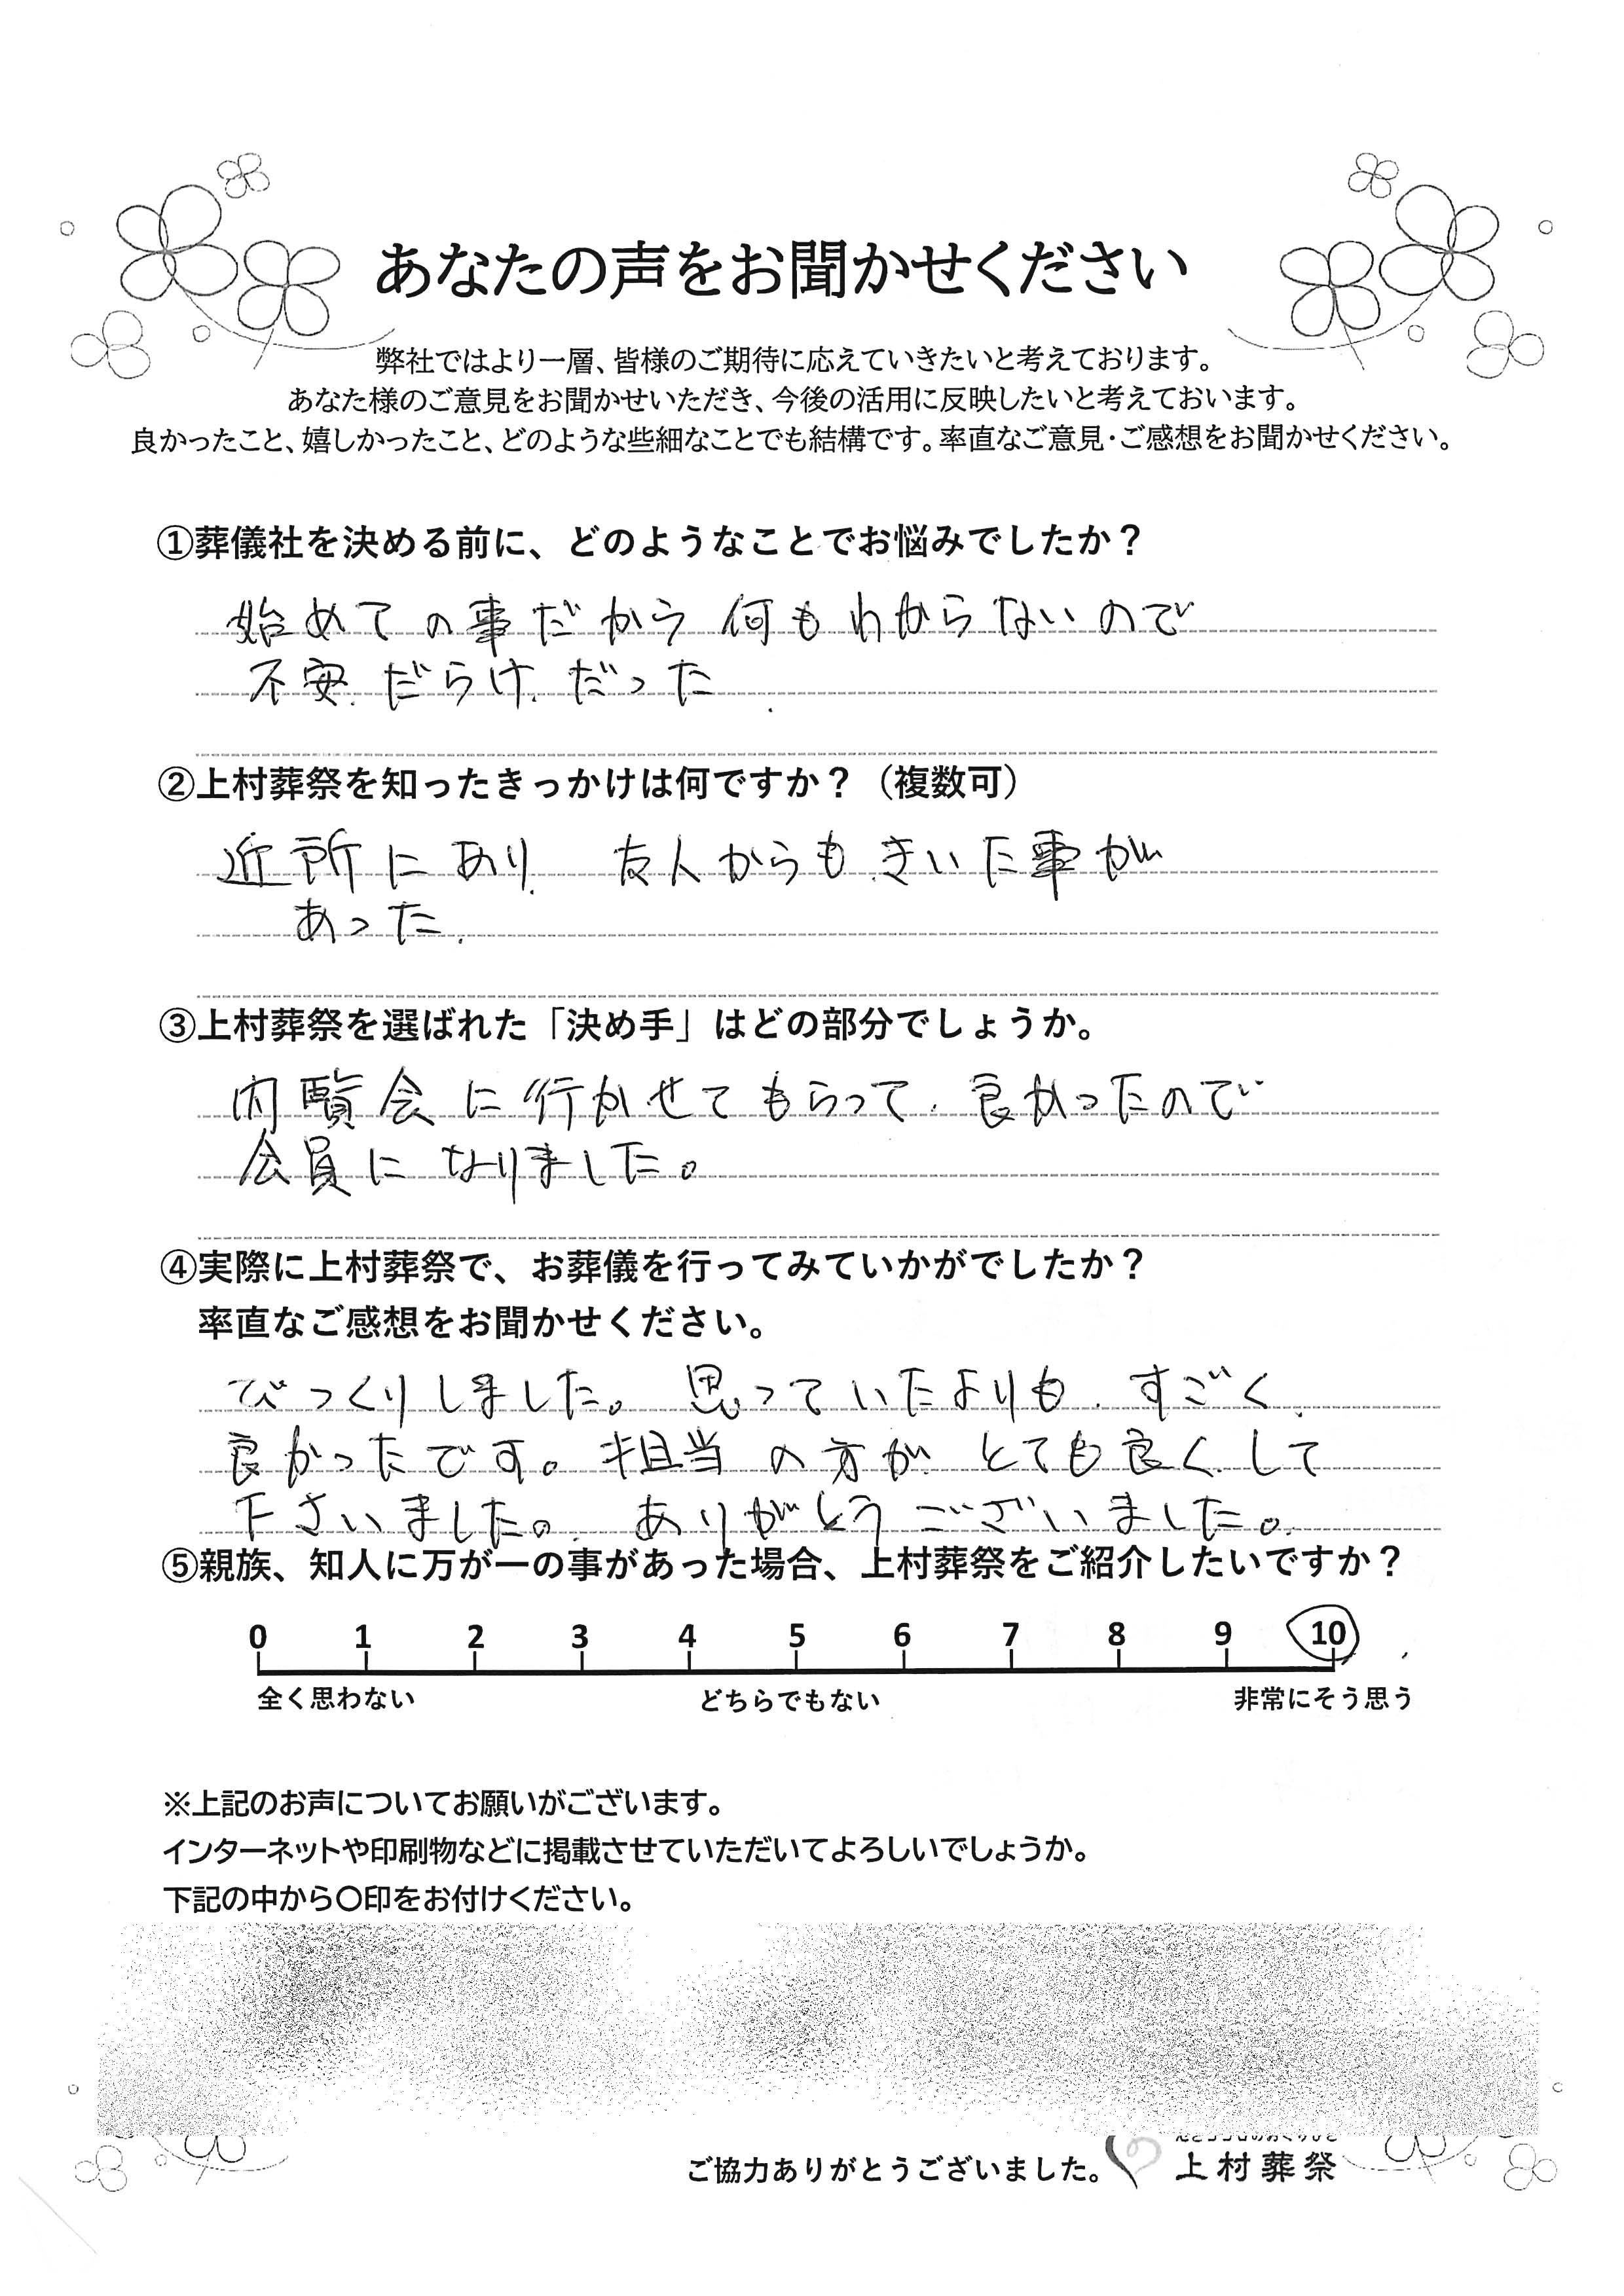 あなたの声をお聞かせください
弊社ではより一層、皆様のご期待に応えていきたいと考えております。
あなた様のご意見をお聞かせいただき、今後の活用に反映したいと考えておいます。
良かったこと、嬉しかったこと、どのような些細なことでも結構です。率直なご意見・ご感想をお聞かせください。
①葬儀社を決める前に、どのようなことでお悩みでしたか？
始めての事だから何もわからないので
不安だらけだった
②上村葬祭を知ったきっかけは何ですか？（複数可）
近所にあり、友人からもきいた事が
あった。
③上村葬祭を選ばれた「決め手」はどの部分でしょうか。
内覧会に行かせてもらって、良かったので
会員になりました。
④実際に上村葬祭で、お葬儀を行ってみていかがでしたか？
率直なご感想をお聞かせください。
びっくりしました。思っていたよりも、すごく、
良かったです。担当の方が、とても良くして
下さいました。ありがとうございました。
⑤親族、知人に万が一の事があった場合、上村葬祭をご紹介したいですか？
0 1 2 3 4 5 6 7 8 9 10
全く思わない どちらでもない 非常にそう思う
※上記のお声についてお願いがございます。
インターネットや印刷物などに掲載させていただいてよろしいでしょうか。
下記の中から〇印をお付けください。
ご協力ありがとうございました。 上村葬祭